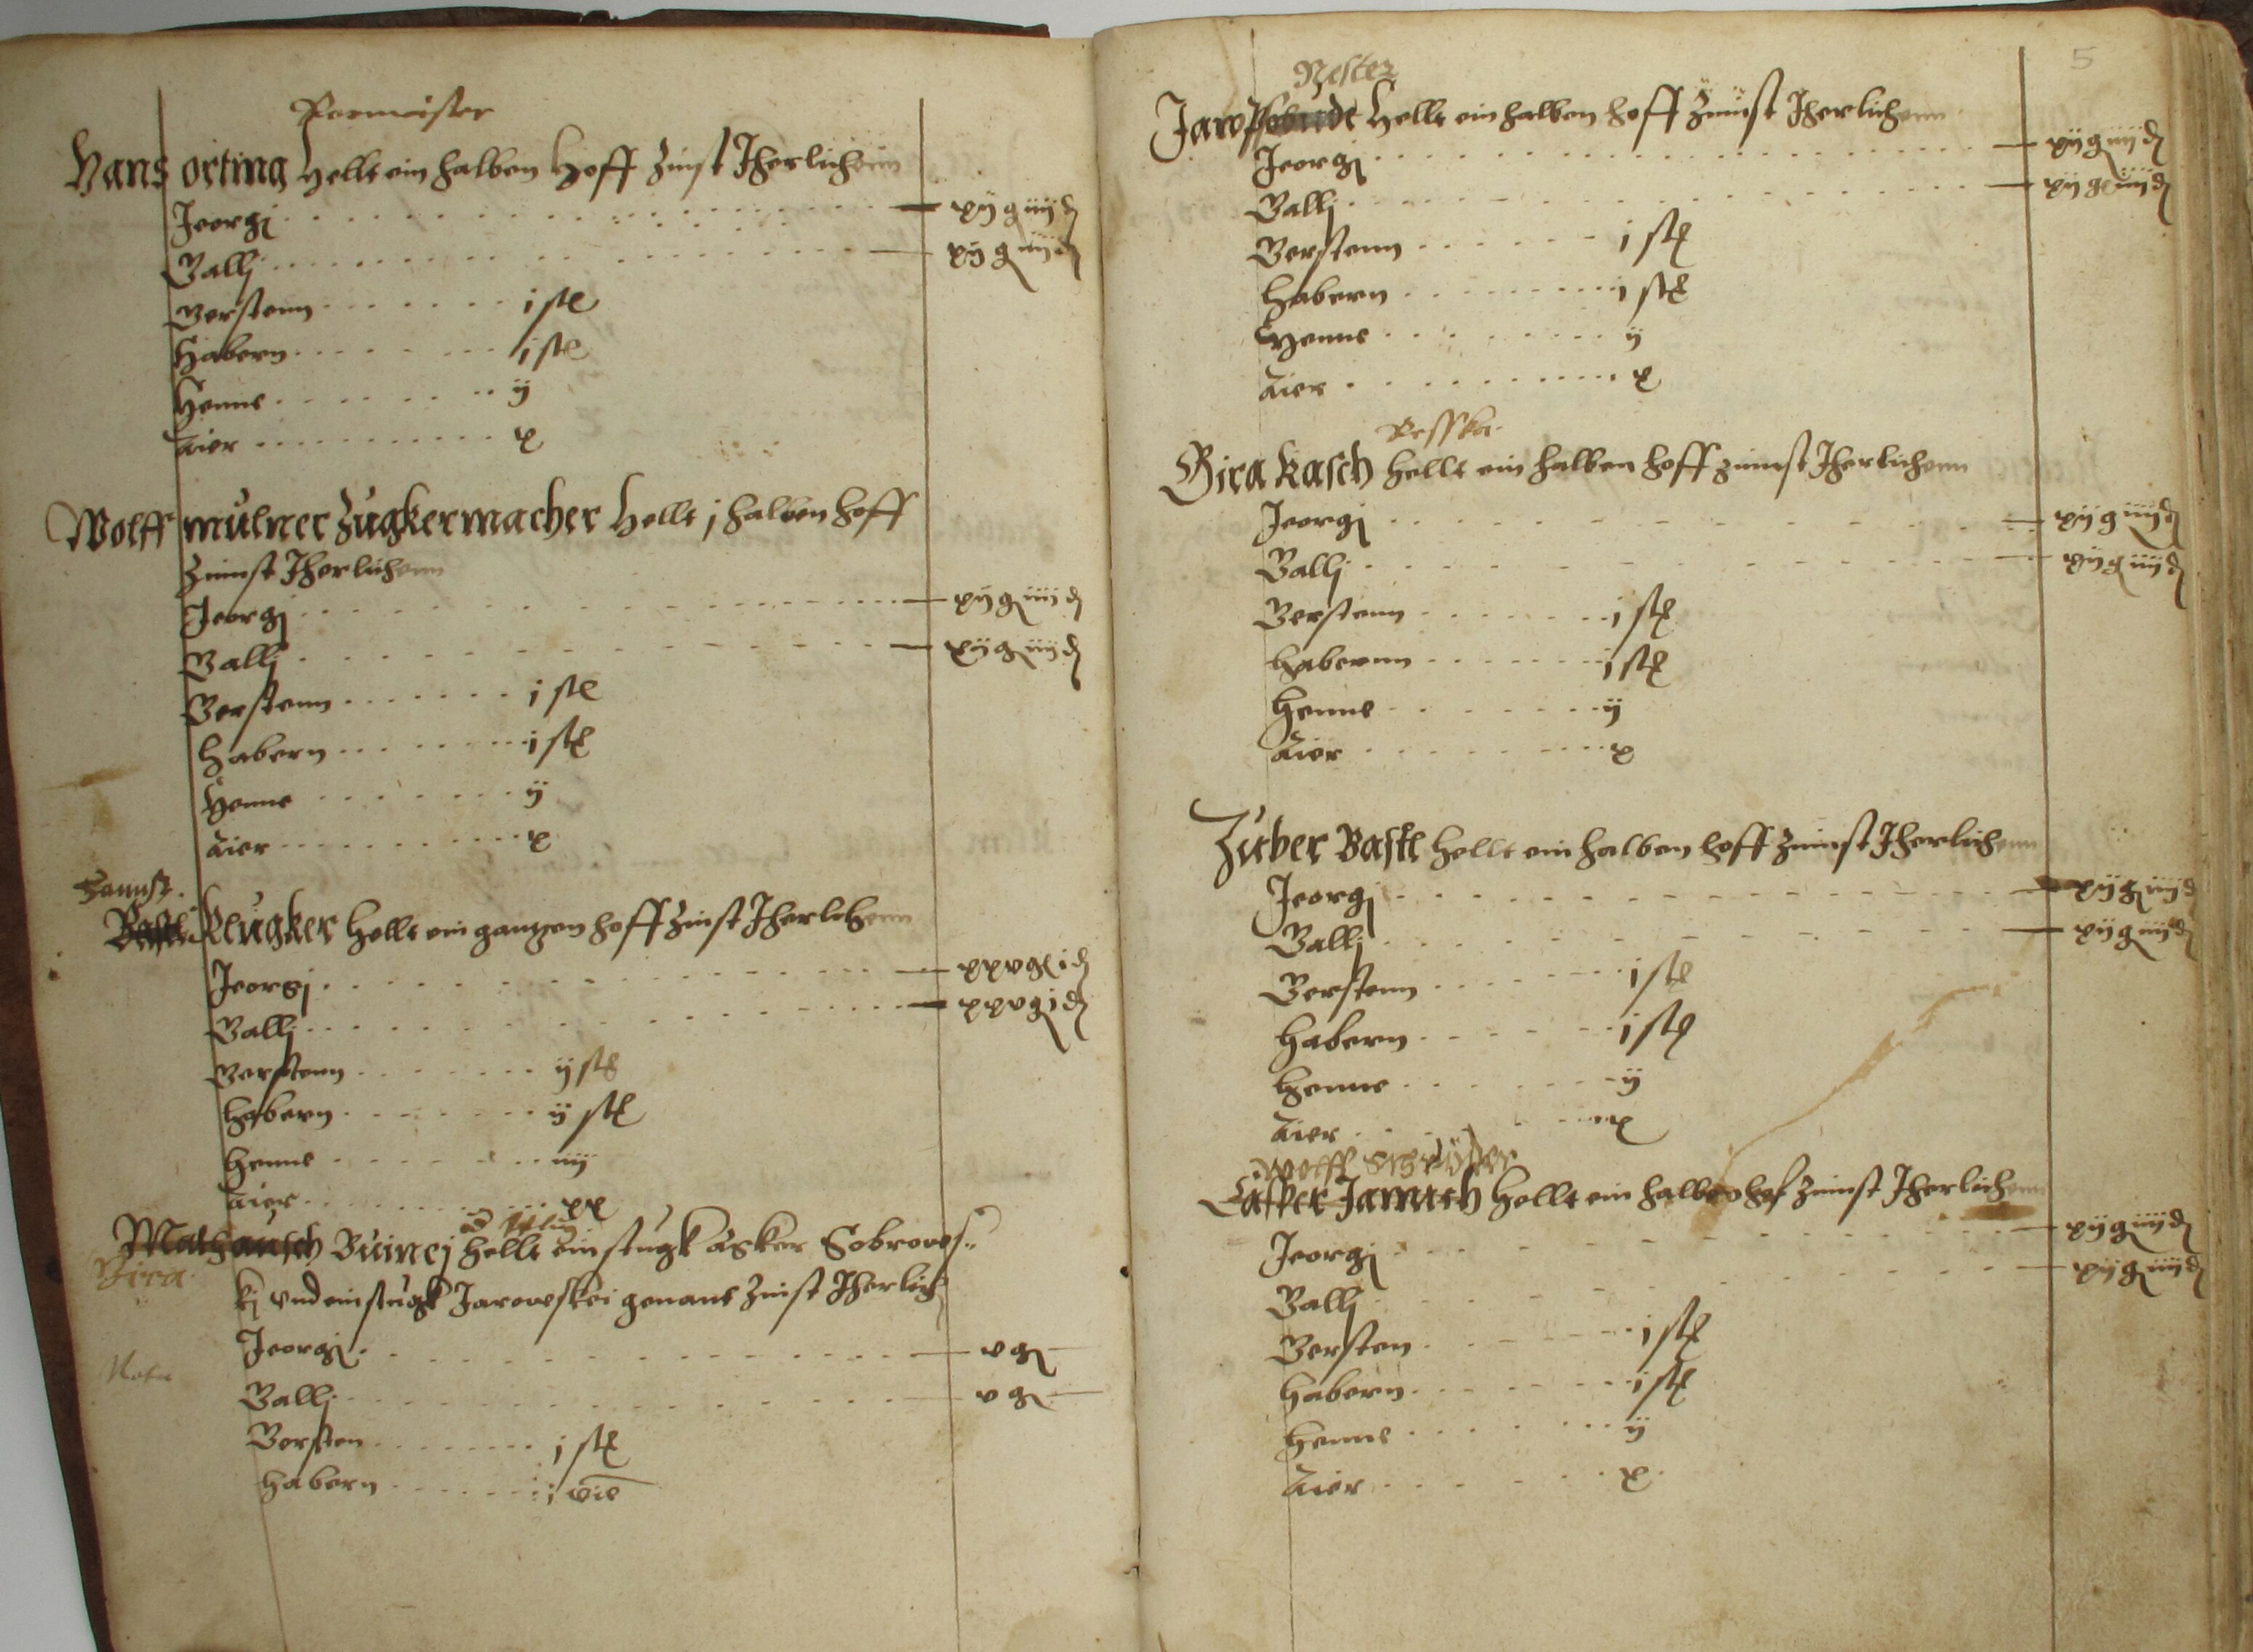 Hans orting Hellt ein halben Hoff Zinst Jherlichenn
Jeorgj xij g iiij d
Gallj xij g iiij d
Gerstenn i stl
Habern i stl
Henne ij
Aier x
Wolff mulner Zugkermacher Hellt j halben hoff
Zinnst Jherlichenn
Jeorgj xij g iiij d
Gallj xij g iiij d
Gerstenn i stl
habern i stl
Henne ij
Aier x
Klugker Hellt ein gantzen hoff Zinst Jherlichenn
Jeorgj xxv g i d
Gallj xxv g i d
Gerstenn ij stl
habern ij stl
Henne iiij
Aier xx
Mathausch hellt ein stugk Acker Sobrows
kj vnd ein stugk Jarowskei genant Zinst Jherlich
Gira
Jeorgj v g
Nota
Gallj v g
Gersten j stl
habern i
5
Nester
Hellt ein halben hoff Zinst Jherlichenn
Jeorgj xij g iiij d
Gallj xij g iiij d
Gerstenn i stl
Habern i stl
Henne ij
Aier x
Gira Kasch hellt ein halben hoff zinnst Jherlichenn
Jeorgj xij g iiij d
Gallj xij g iiij d
Gerstenn i stl
habernn i stl
Henne ij
Aier x
Zuber Bastl hellt ein halben hoff Zinnst Jherlichenn
Jeorgj xij g iiij d
Gallj xij g iiij d
Gerstenn i stl
habern i stl
henne ij
Aier x
Wolff
Casper Janusch Hellt ein halben hof Zinnst Jherlichenn
Jeorgj xij g iiij d
Gallj xij g iiij d
Gersten i stl
habern i stl
henne ij
Aier x